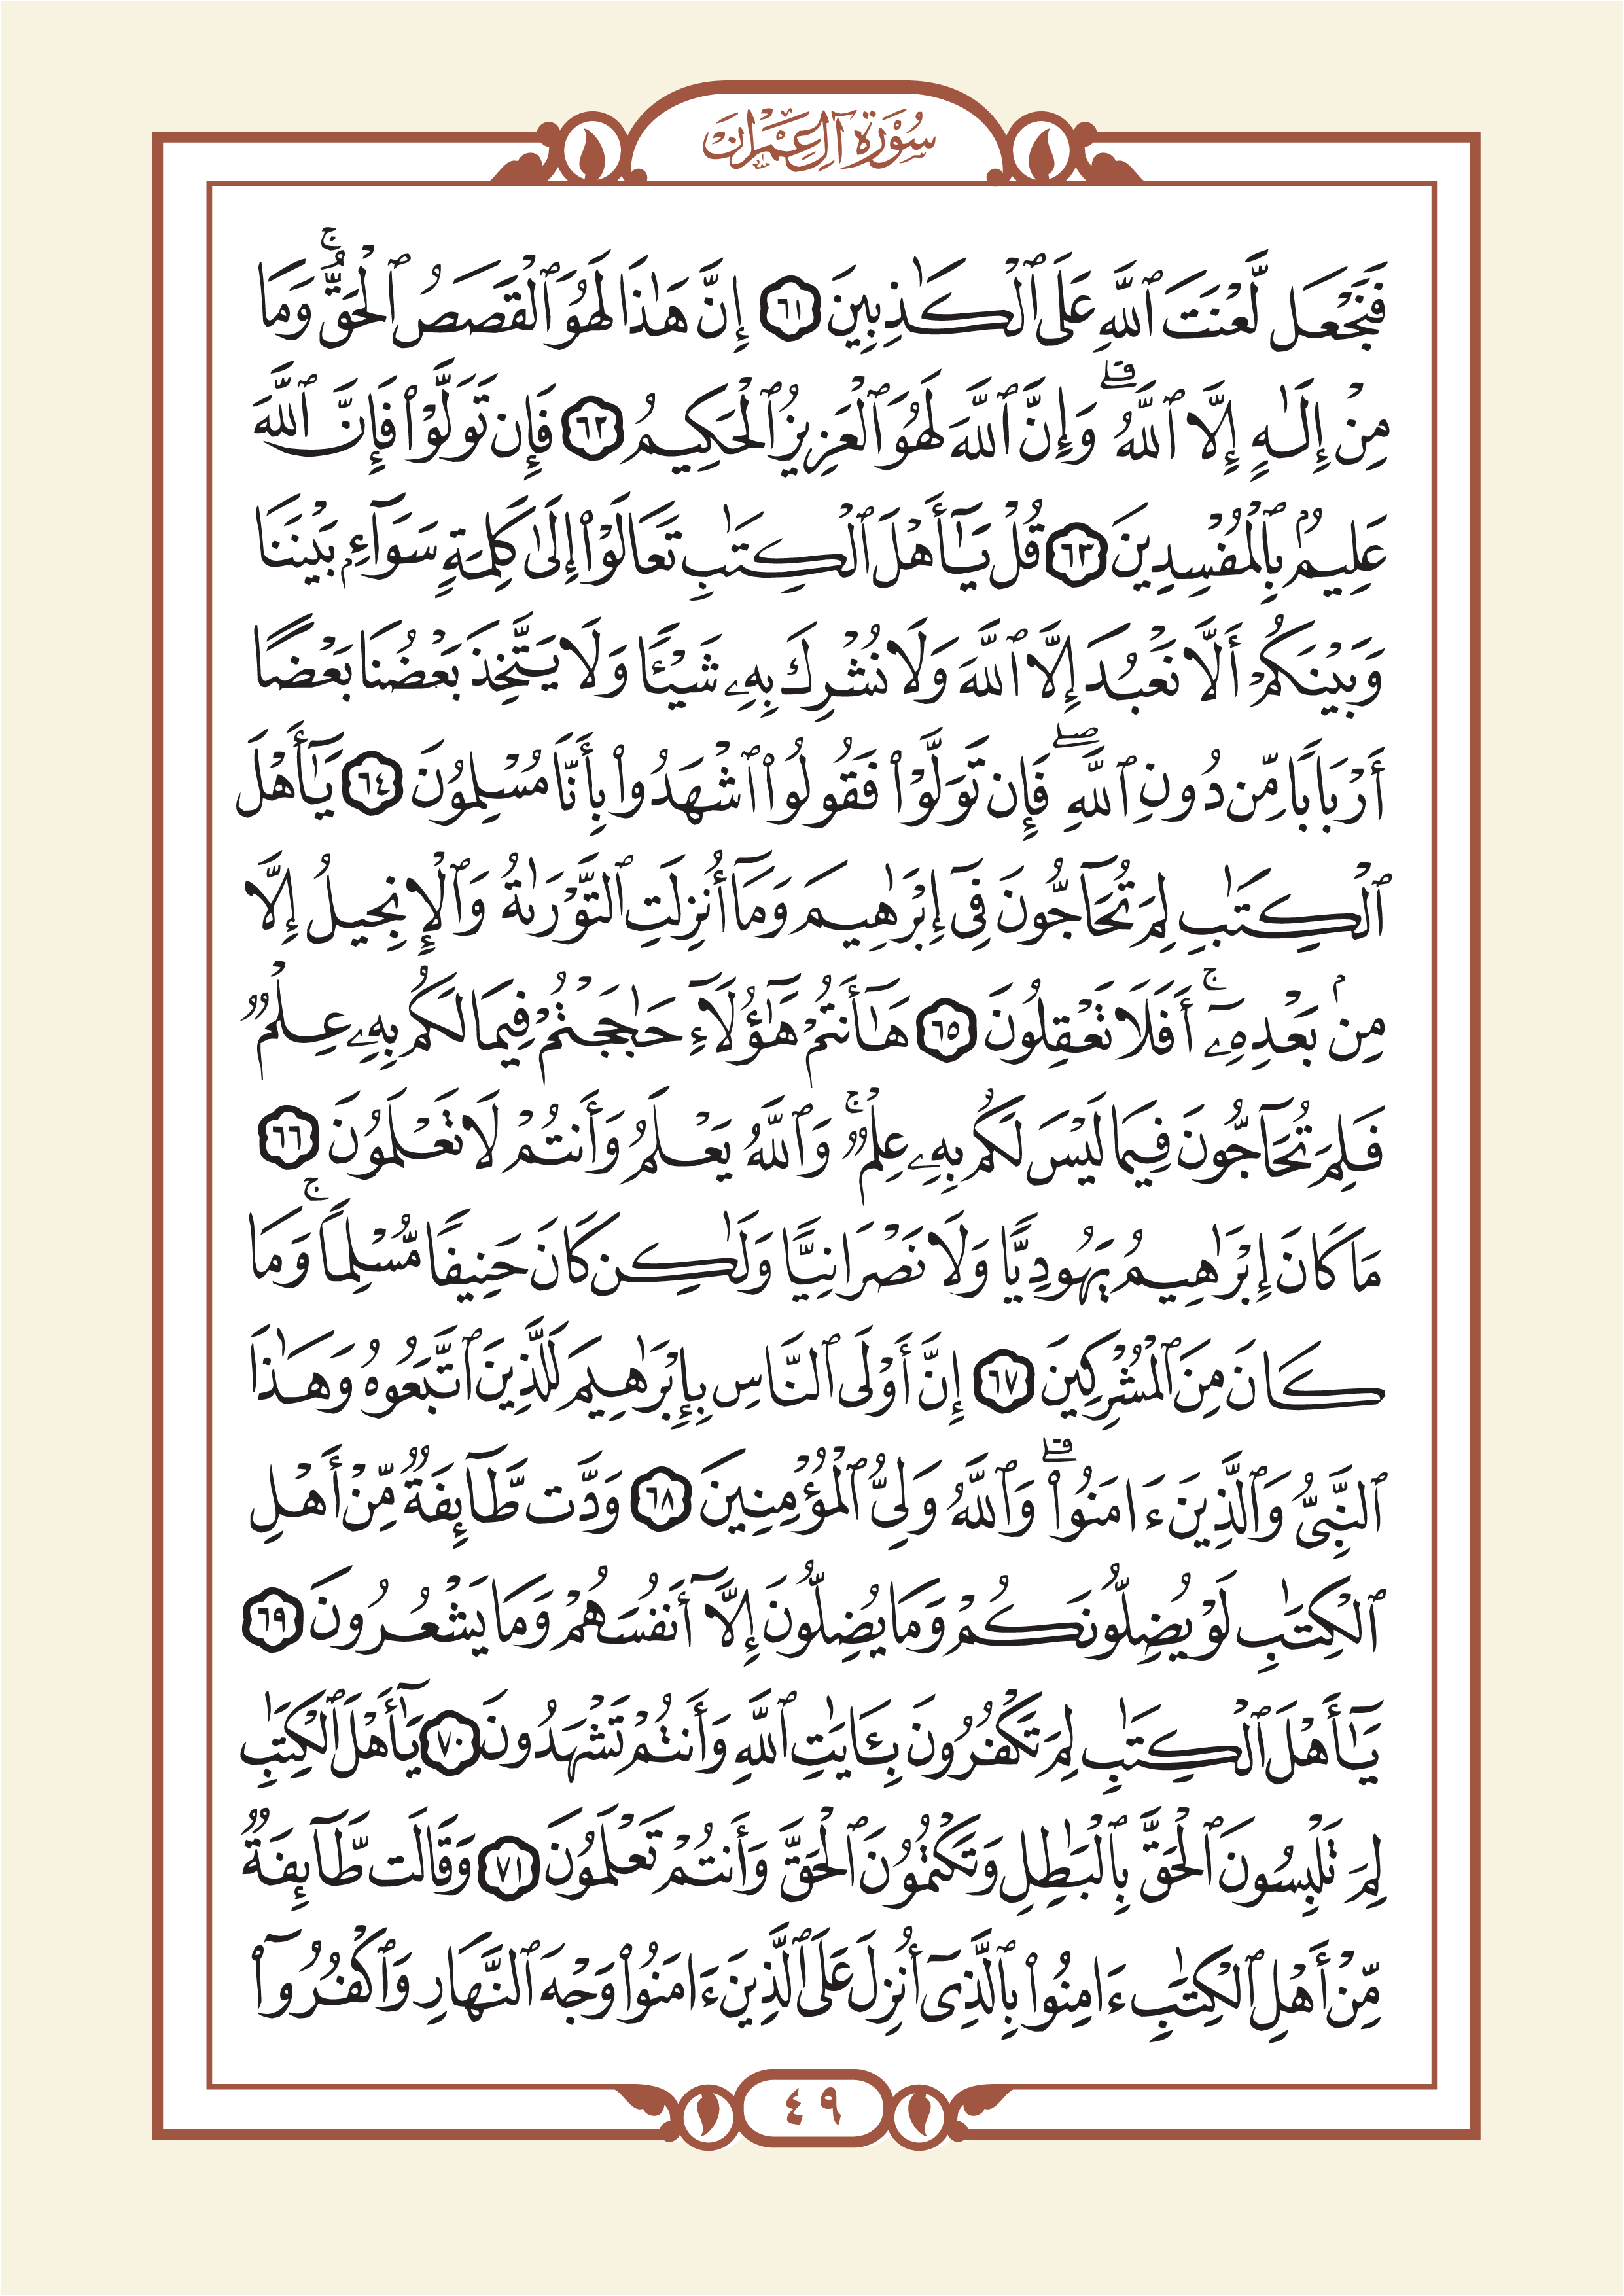 سُوْرَةُ آلِ عِمْرَان
فَنَجْعَل لَّعْنَتَ ٱللَّهِ عَلَى ٱلْكَـٰذِبِينَ ٦١ إِنَّ هَـٰذَا لَهُوَ ٱلْقَصَصُ ٱلْحَقُّ ۚ وَمَا
مِنْ إِلَـٰهٍ إِلَّا ٱللَّهُ ۗ وَإِنَّ ٱللَّهَ لَهُوَ ٱلْعَزِيزُ ٱلْحَكِيمُ ٦٢ فَإِن تَوَلَّوْا۟ فَإِنَّ ٱللَّهَ
عَلِيمٌۢ بِٱلْمُفْسِدِينَ ٦٣ قُلْ يَـٰٓأَهْلَ ٱلْكِتَـٰبِ تَعَالَوْا۟ إِلَىٰ كَلِمَةٍ سَوَآءٍۭ بَيْنَنَا
وَبَيْنَكُمْ أَلَّا نَعْبُدَ إِلَّا ٱللَّهَ وَلَا نُشْرِكَ بِهِۦ شَيْـًٔا وَلَا يَتَّخِذَ بَعْضُنَا بَعْضًا
أَرْبَابًا مِّن دُونِ ٱللَّهِ ۖ فَإِن تَوَلَّوْا۟ فَقُولُوا۟ ٱشْهَدُوا۟ بِأَنَّا مُسْلِمُونَ ٦٤ يَـٰٓأَهْلَ
ٱلْكِتَـٰبِ لِمَ تُحَآجُّونَ فِىٓ إِبْرَٰهِيمَ وَمَآ أُنزِلَتِ ٱلتَّوْرَىٰةُ وَٱلْإِنجِيلُ إِلَّا
مِنۢ بَعْدِهِۦٓ ۚ أَفَلَا تَعْقِلُونَ ٦٥ هَـٰٓأَنتُمْ هَـٰٓؤُلَآءِ حَـٰجَجْتُمْ فِيمَا لَكُم بِهِۦ عِلْمٌ
فَلِمَ تُحَآجُّونَ فِيمَا لَيْسَ لَكُم بِهِۦ عِلْمٌ ۚ وَٱللَّهُ يَعْلَمُ وَأَنتُمْ لَا تَعْلَمُونَ ٦٦
مَا كَانَ إِبْرَٰهِيمُ يَهُودِيًّا وَلَا نَصْرَانِيًّا وَلَـٰكِن كَانَ حَنِيفًا مُّسْلِمًا ۚ وَمَا
كَانَ مِنَ ٱلْمُشْرِكِينَ ٦٧ إِنَّ أَوْلَى ٱلنَّاسِ بِإِبْرَٰهِيمَ لَلَّذِينَ ٱتَّبَعُوهُ وَهَـٰذَا
ٱلنَّبِىُّ وَٱلَّذِينَ ءَامَنُوا۟ ۗ وَٱللَّهُ وَلِىُّ ٱلْمُؤْمِنِينَ ٦٨ وَدَّت طَّآئِفَةٌ مِّنْ أَهْلِ
ٱلْكِتَـٰبِ لَوْ يُضِلُّونَكُمْ وَمَا يُضِلُّونَ إِلَّآ أَنفُسَهُمْ وَمَا يَشْعُرُونَ ٦٩
يَـٰٓأَهْلَ ٱلْكِتَـٰبِ لِمَ تَكْفُرُونَ بِـَٔايَـٰتِ ٱللَّهِ وَأَنتُمْ تَشْهَدُونَ ٧٠ يَـٰٓأَهْلَ ٱلْكِتَـٰبِ
لِمَ تَلْبِسُونَ ٱلْحَقَّ بِٱلْبَـٰطِلِ وَتَكْتُمُونَ ٱلْحَقَّ وَأَنتُمْ تَعْلَمُونَ ٧١ وَقَالَت طَّآئِفَةٌ
مِّنْ أَهْلِ ٱلْكِتَـٰبِ ءَامِنُوا۟ بِٱلَّذِىٓ أُنزِلَ عَلَى ٱلَّذِينَ ءَامَنُوا۟ وَجْهَ ٱلنَّهَارِ وَٱكْفُرُوٓا۟
٤٩